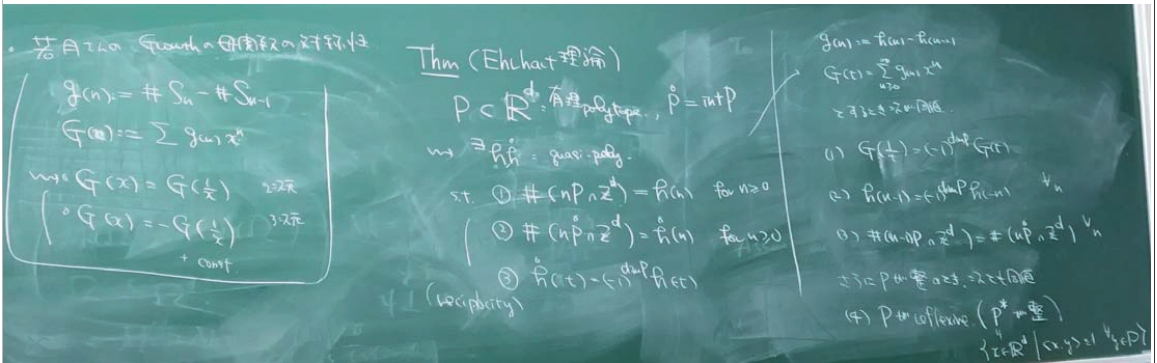 Growth の母関数の対称性
g(n) := # Sn - # Sn-1
G(x) := Σ g(n) x^n
G(x) = G(1/x) 2次元
G(x) = -G(1/x) 3次元
+ const.
Thm (Ehrhart 理論)
P ⊂ ℝ^d : 有理 polytope, P̊ = int P
∃ h, h̊ : quasi-poly.
s.t. ① # (nP ∩ ℤ^d) = h(n) for n≥0
② # (nP̊ ∩ ℤ^d) = h̊(n) for n≥0
③ h̊(t) = (-1)^dimP h(-t)
(reciprocity)
g(n) := h(n) - h(n-1)
G(t) = Σ n≥0 g(n) x^n
とするとき次は同値
(1) G(1/t) = (-1)^dimP G(t)
(2) h(n-1) = (-1)^dimP h(-n) ∀n
(3) #((n-1)P ∩ ℤ^d) = #(nP̊ ∩ ℤ^d) ∀n
さらに P が整のとき, 次とも同値
(4) P が reflexive (P* が整)
{x∈ℝ^d | <x,y> ≤1 ∀y∈P}